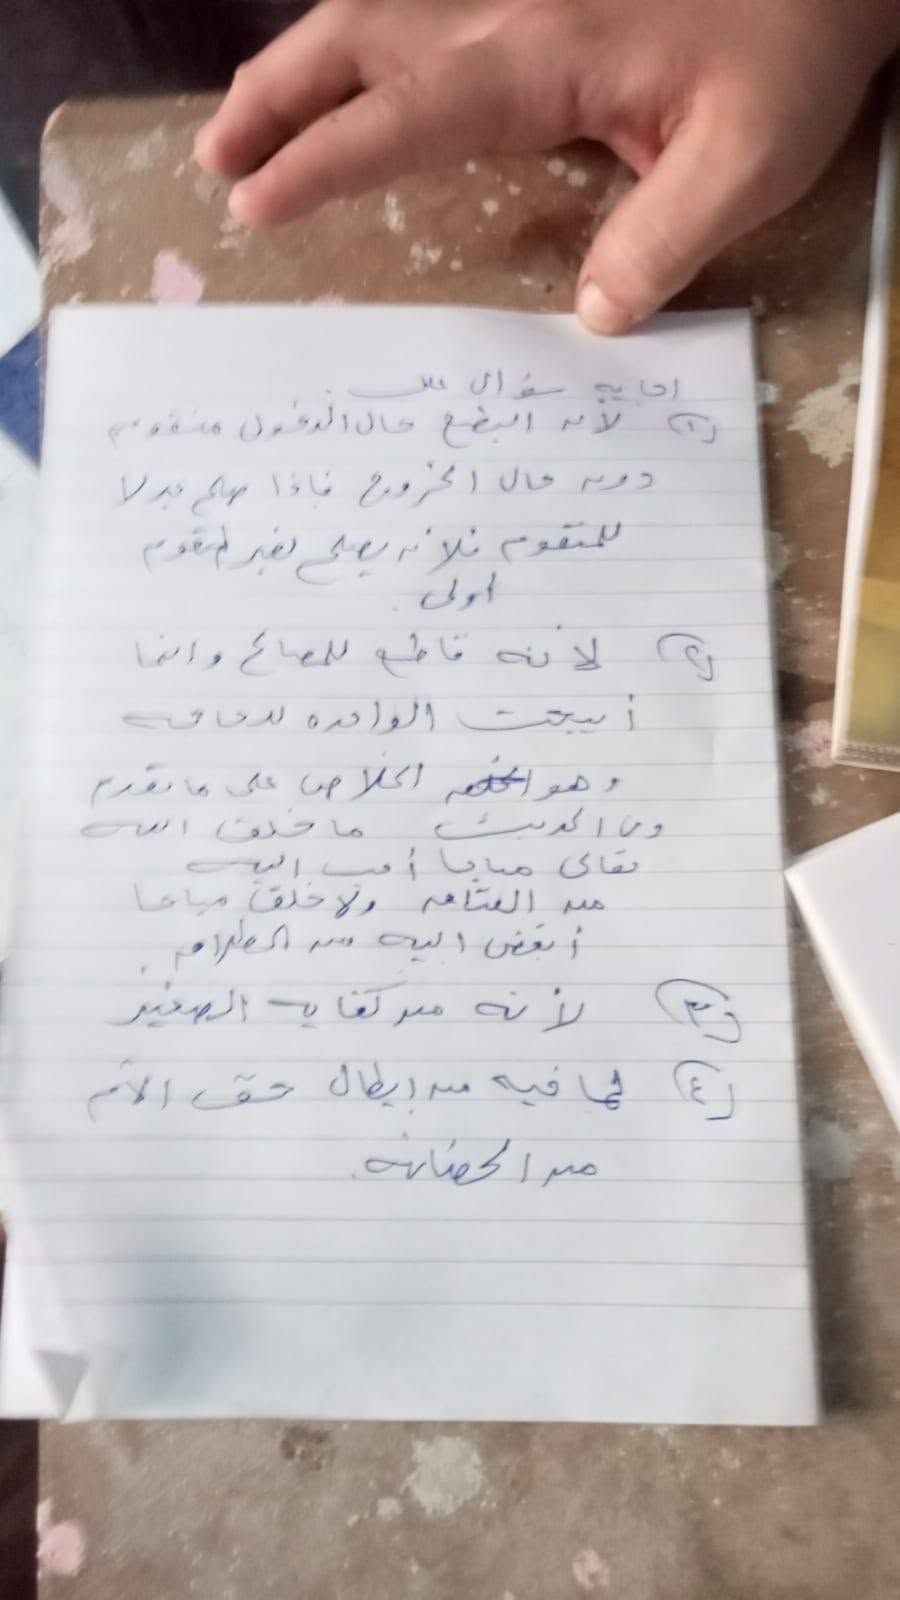 اجابه سؤال علل
(١) لأنه البضع حال الدخول متقوم
دون حال الخروج فاذا صلح بدلا
للمتقوم فلانه يصلح لغير المتقوم
اولى .
(٢) لأنه قاطع للمصالح وانما
أبيحت الواحده للحاجه
وهو الخلاص على ما تقدم
وفى الحديث ما خلق الله
تعالى مباحا أحب اليه
من العتاق ولا خلق مباحا
أبغض اليه من الطلاق .
(٣) لأنه من كفايه الصغير
(٤) لما فيه من إبطال حق الأم
من الحضانه .